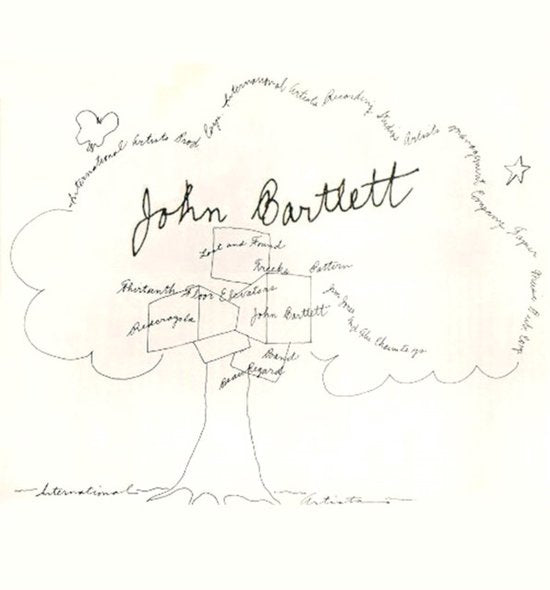 International Artists Prod Corp International Artists Recording Studios Artists Management Company Tapper Music Pub Corp
John Bartlett
Lost and Found
Freeks Pattern
Thirteenth Floor Elevators
Redcrayola
John Bartlett
and the Chaunteys
Band
Beau Regard
International Artists